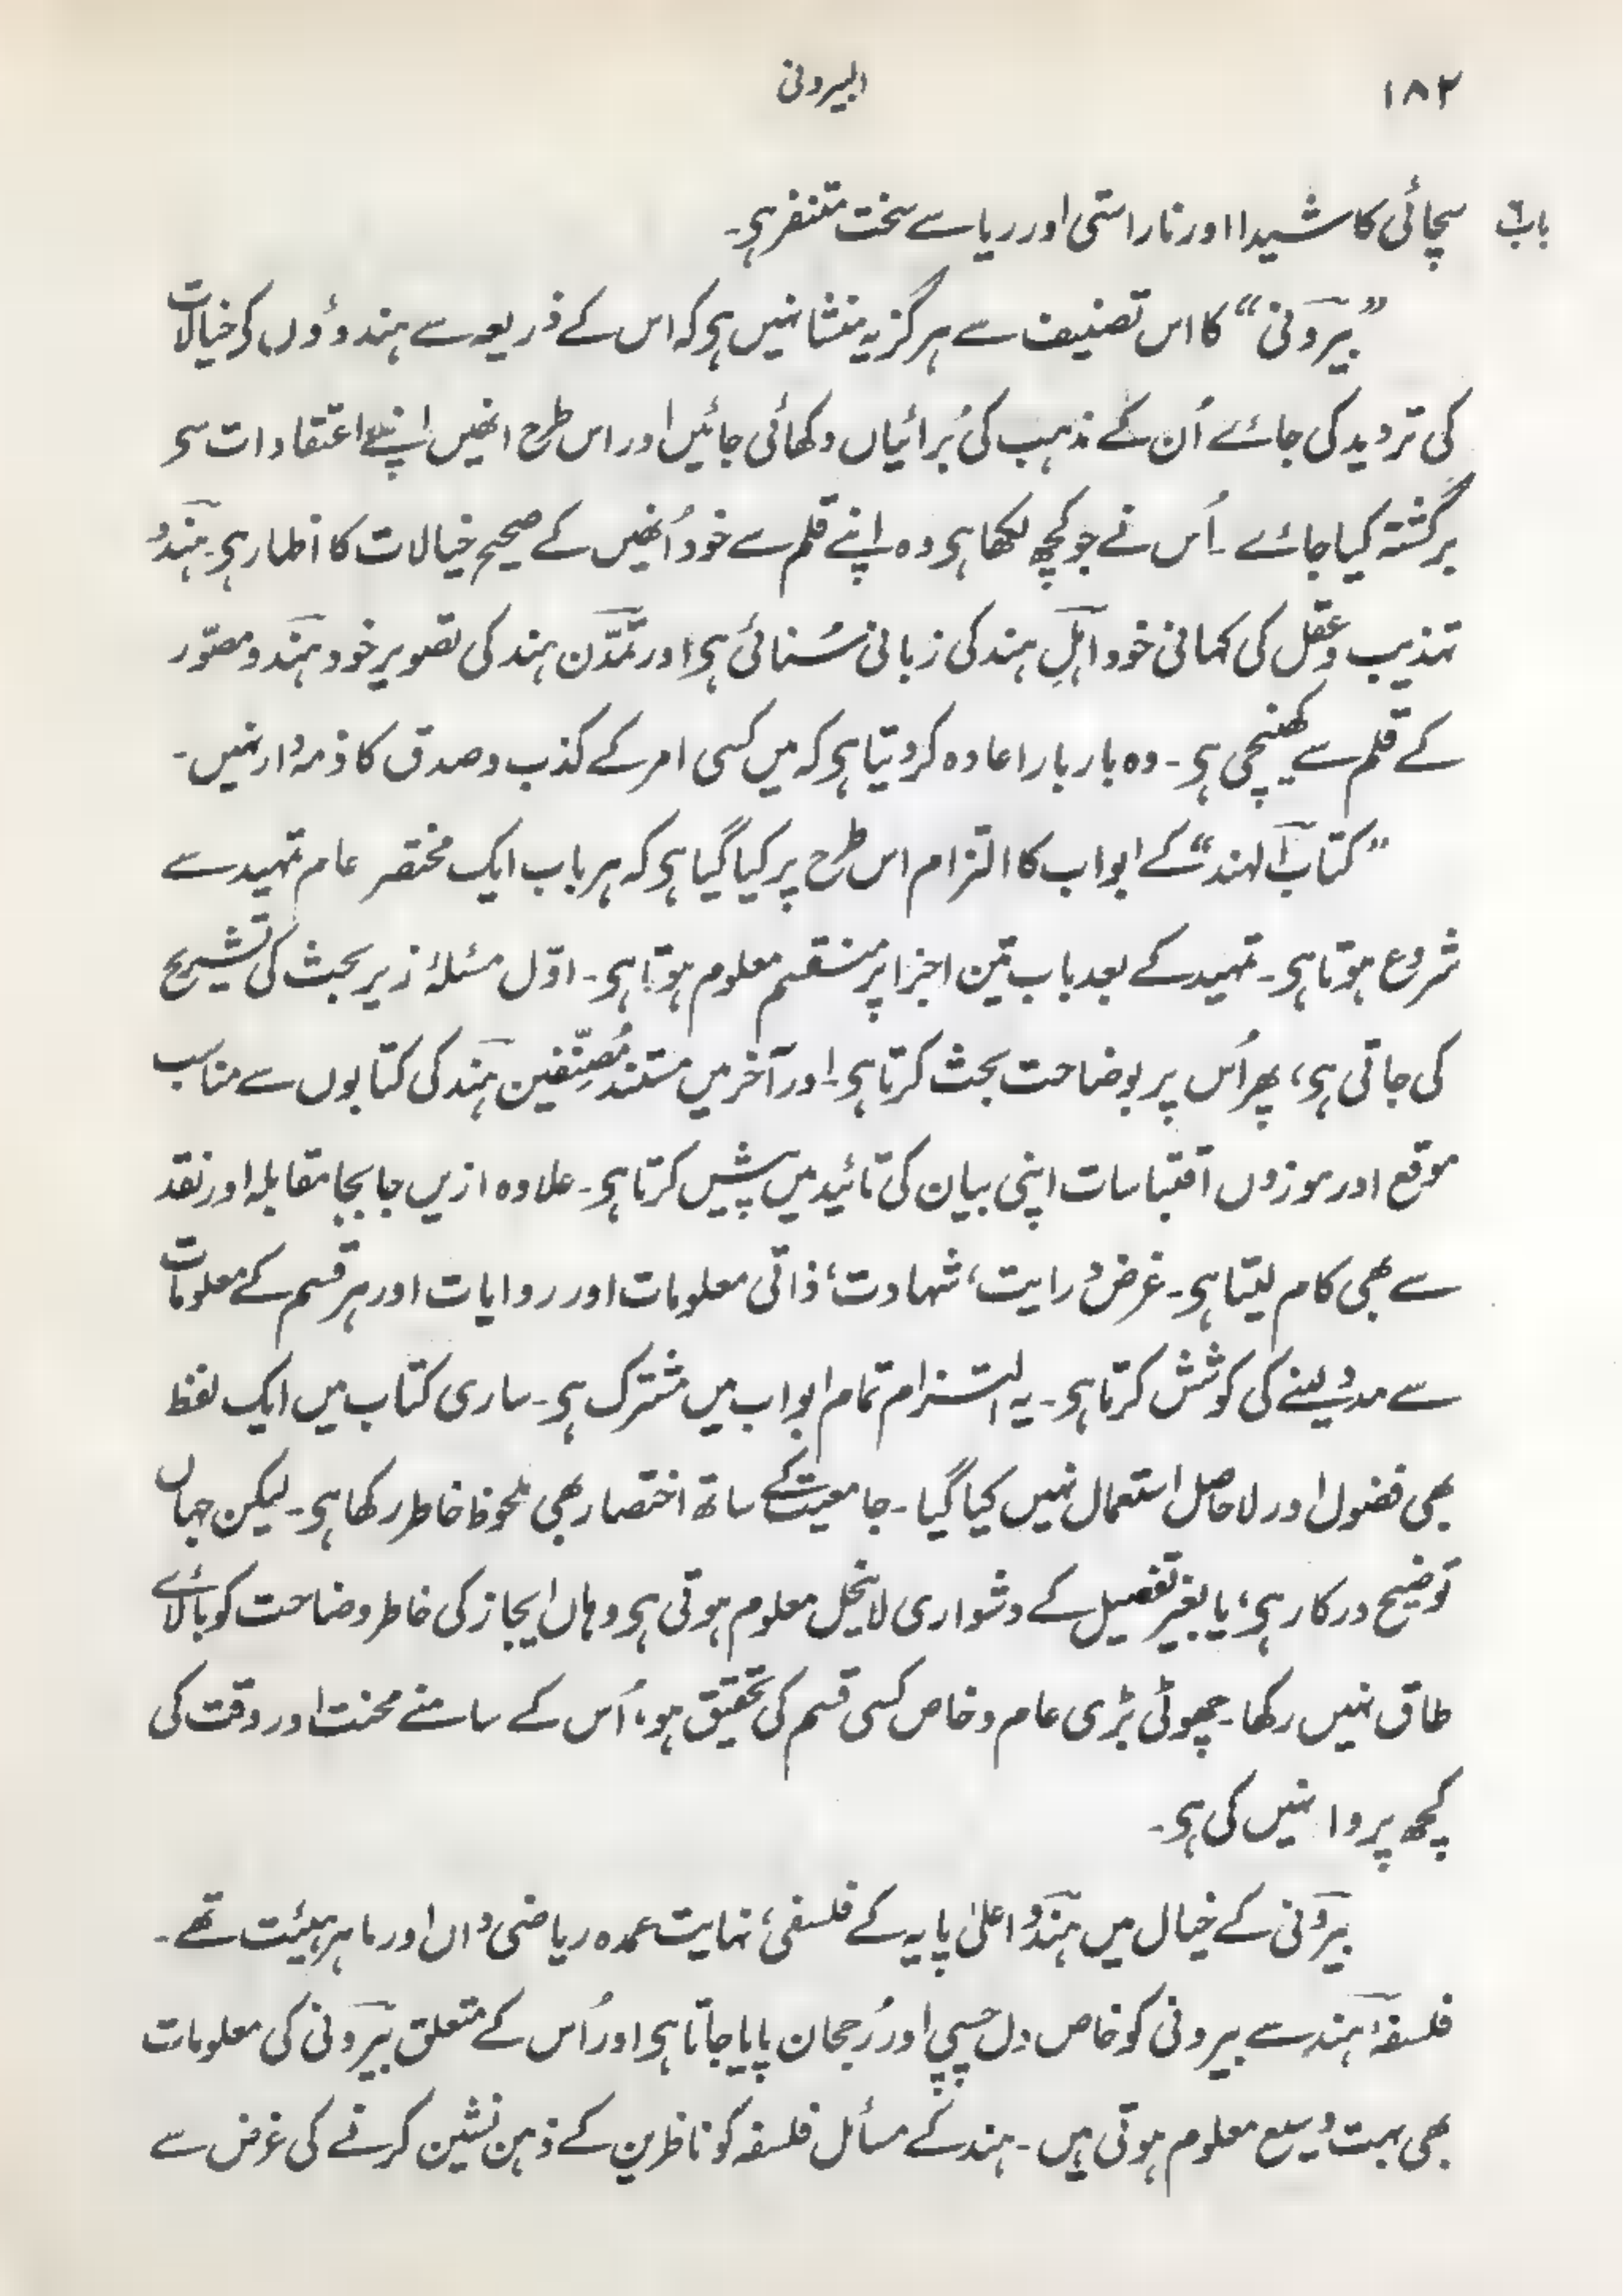 ۱۸۲ البیرونی
باب ۶ سچائی کا شیدا اور ناراستی اور ریا سے سخت متنفر ہی۔
”بیرونی“ کا اس تصنیف سے ہرگز یہ منشا نہیں ہی کہ اس کے ذریعہ سے ہندوؤں کی خیالات
کی تردید کی جائے اُن کے مذہب کی بُرائیاں دکھائی جائیں اور اس طرح انھیں اپنے اعتقادات سے
برگشتہ کیا جائے ۔ اُس نے جو کچھ لکھا ہی وہ اپنے قلم سے خود اُنھیں کے صحیح خیالات کا اظہار ہی۔ ہندو
تہذیب و عقل کی کہانی خود اہلِ ہند کی زبانی سُنائی ہی اور تمدّن ہند کی تصویر خود ہندو مصوّر
کے قلم سے کھنچی ہی۔ وہ بار بار اعادہ کر دیتا ہی کہ میں کسی امر کے کذب و صدق کا ذمہ دار نہیں۔
”کتاب الہند“ کے ابواب کا التزام اس طرح پر کیا گیا ہی کہ ہر باب ایک مختصر عام تمہید سے
شروع ہوتا ہی۔ تمہید کے بعد باب تین اجزا پر منقسم معلوم ہوتا ہی۔ اوّل مسئلۂ زیر بحث کی تشریح
کی جاتی ہی، پھر اُس پر بوضاحت بحث کرتا ہی۔ اور آخر میں مستند مُصنّفین ہند کی کتابوں سے مناسب
موقع اور موزوں اقتباسات اپنی بیان کی تائید میں پیش کرتا ہی۔ علاوہ ازیں جابجا مقابلہ اور نقد
سے بھی کام لیتا ہی۔ غرض درایت، شہادت، ذاتی معلومات اور روایات اور ہر قسم کے معلومات
سے مدد لینے کی کوشش کرتا ہی۔ یہ التزام تمام ابواب میں مشترک ہی۔ ساری کتاب میں ایک لفظ
بھی فضول اور لاحاصل استعمال نہیں کیا گیا ۔ جامعیت کے ساتھ اختصار بھی ملحوظ خاطر رکھا ہی۔ لیکن جہاں
توضیح درکار ہی، یا بغیر تفصیل کے دشواری لاینحل معلوم ہوتی ہی وہاں ایجاز کی خاطر وضاحت کو بالائے
طاق نہیں رکھا۔ چھوٹی بڑی عام و خاص کسی قسم کی تحقیق ہو، اُس کے سامنے محنت اور وقت کی
کچھ پروا نہیں کی ہی۔
بیرونی کے خیال میں ہندو اعلیٰ پایہ کے فلسفی، نہایت عمدہ ریاضی داں اور ماہر ہیئت تھے۔
فلسفۂ ہند سے بیرونی کو خاص دل چسپی اور رُجحان پایا جاتا ہی اور اُس کے متعلق بیرونی کی معلومات
بھی بہت وسیع معلوم ہوتی ہیں۔ ہند کے مسائل فلسفہ کو ناظرین کے ذہن نشین کرنے کی غرض سے